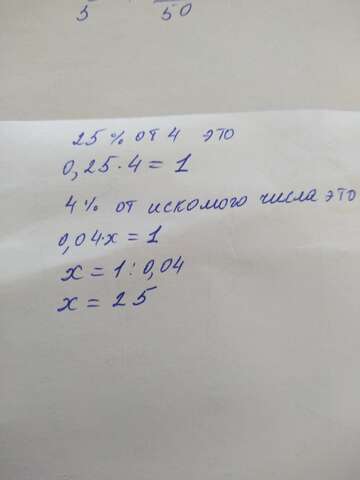 5 50
25% от 4 это
0,25·4=1
4% от искомого числа это
0,04·x=1
x=1:0,04
x=25